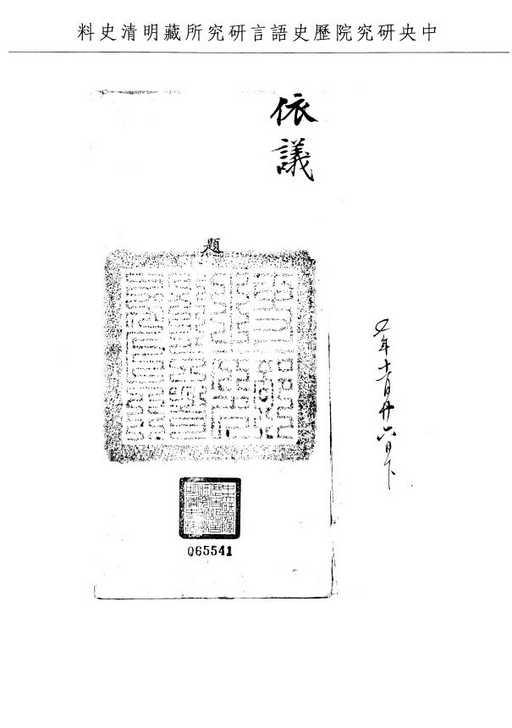 中央研究院歷史語言研究所藏明清史料
年十一月廿六日下
依議
題
065541